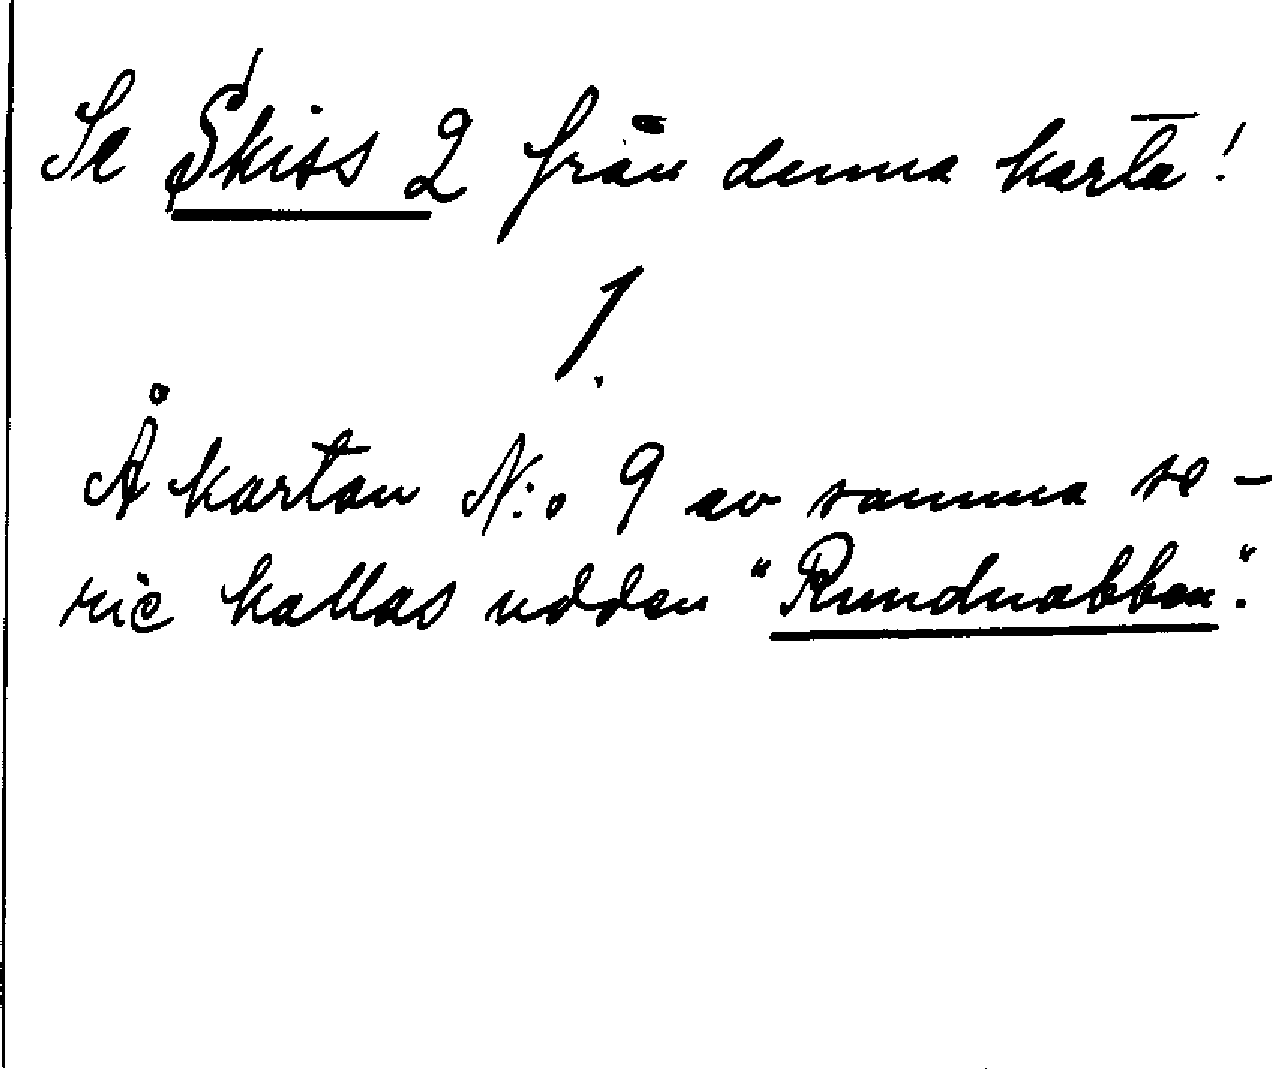 Se Skiss 2 från denna karta!
1.
Å kartan N:o 9 av samma se-
rie kallas udden "Rundnabben".